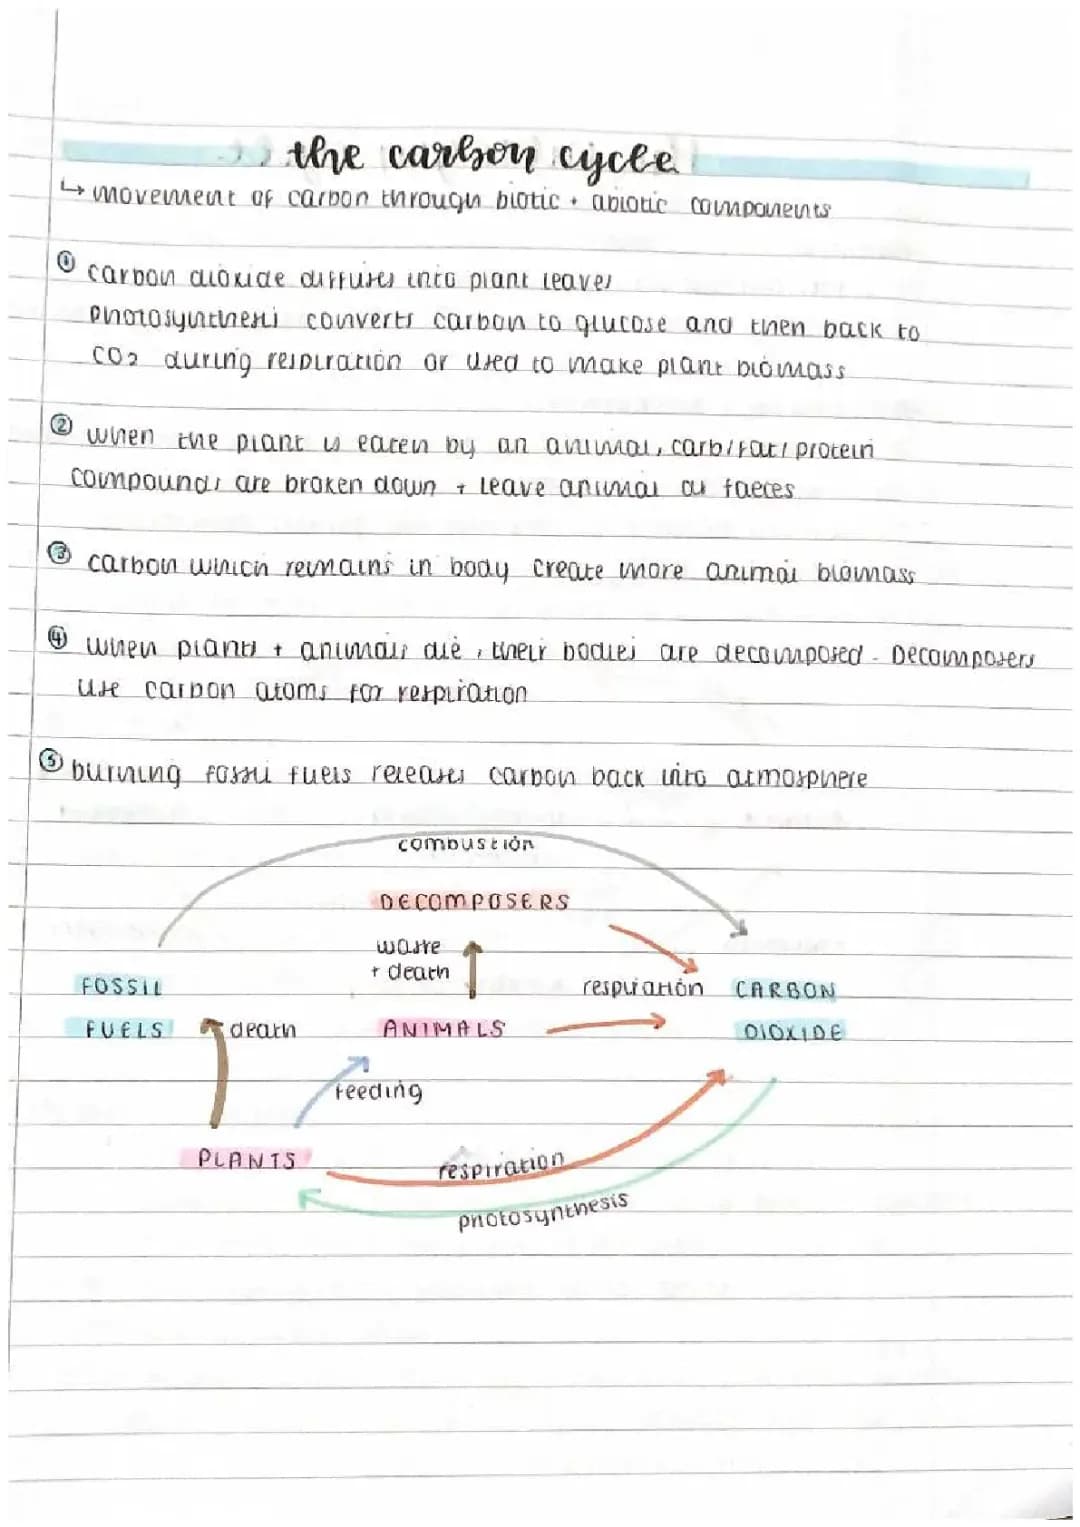 the carbon cycle
↳ movement of carbon through biotic + abiotic components
① carbon dioxide diffuses into plant leaves
photosynthesis converts carbon to glucose and then back to
CO2 during respiration or used to make plant biomass
② when the plant is eaten by an animal, carb/fat/protein
compounds are broken down + leave animal as faeces
③ carbon which remains in body create more animal biomass
④ when plants + animals die, their bodies are decomposed. Decomposers
use carbon atoms for respiration
⑤ burning fossil fuels releases carbon back into atmosphere
combustion
DECOMPOSERS
waste
+ death
FOSSIL
respiration
CARBON
FUELS
death
ANIMALS
DIOXIDE
feeding
PLANTS
respiration
photosynthesis